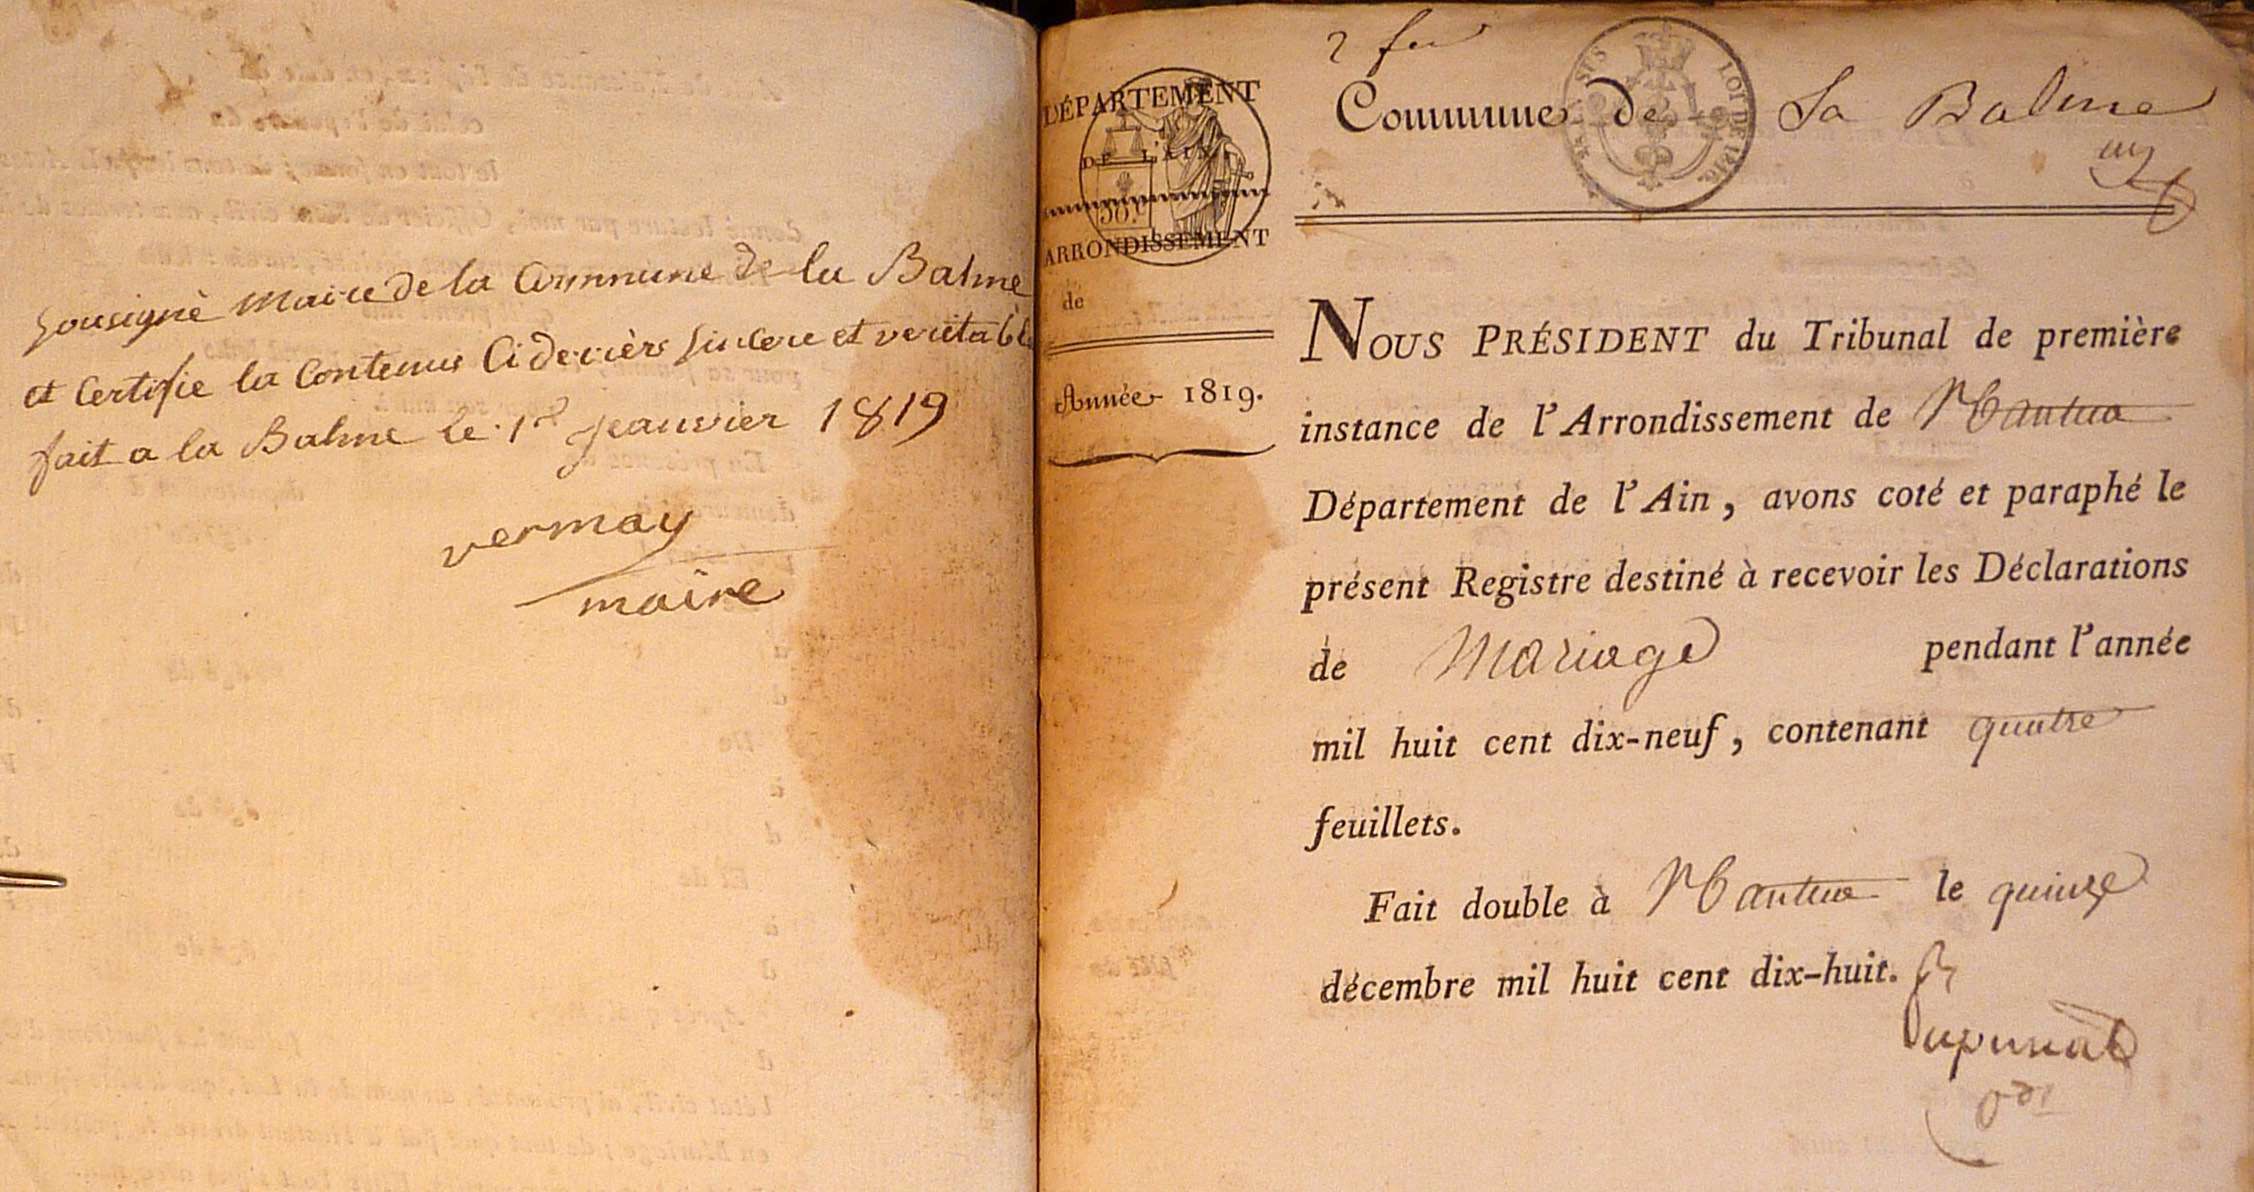 sousigné maire de la Commune de la Balme
et Certifie la Contenue Ci derièr sincere et veritable
fait a la Balme le 1er jeanvier 1819
vermay
maire
2 feu
DÉPARTEMENT
DE L'AIN
50.c
ARRONDISSEMENT
de
Année 1819.
Commune de La Balme
LOI DE 1816.
NOUS PRÉSIDENT du Tribunal de première
instance de l'Arrondissement de Nantua
Département de l'Ain, avons coté et paraphé le
présent Registre destiné à recevoir les Déclarations
de Mariage pendant l'année
mil huit cent dix-neuf, contenant quatre
feuillets.
Fait double à Nantua le quinze
décembre mil huit cent dix-huit.